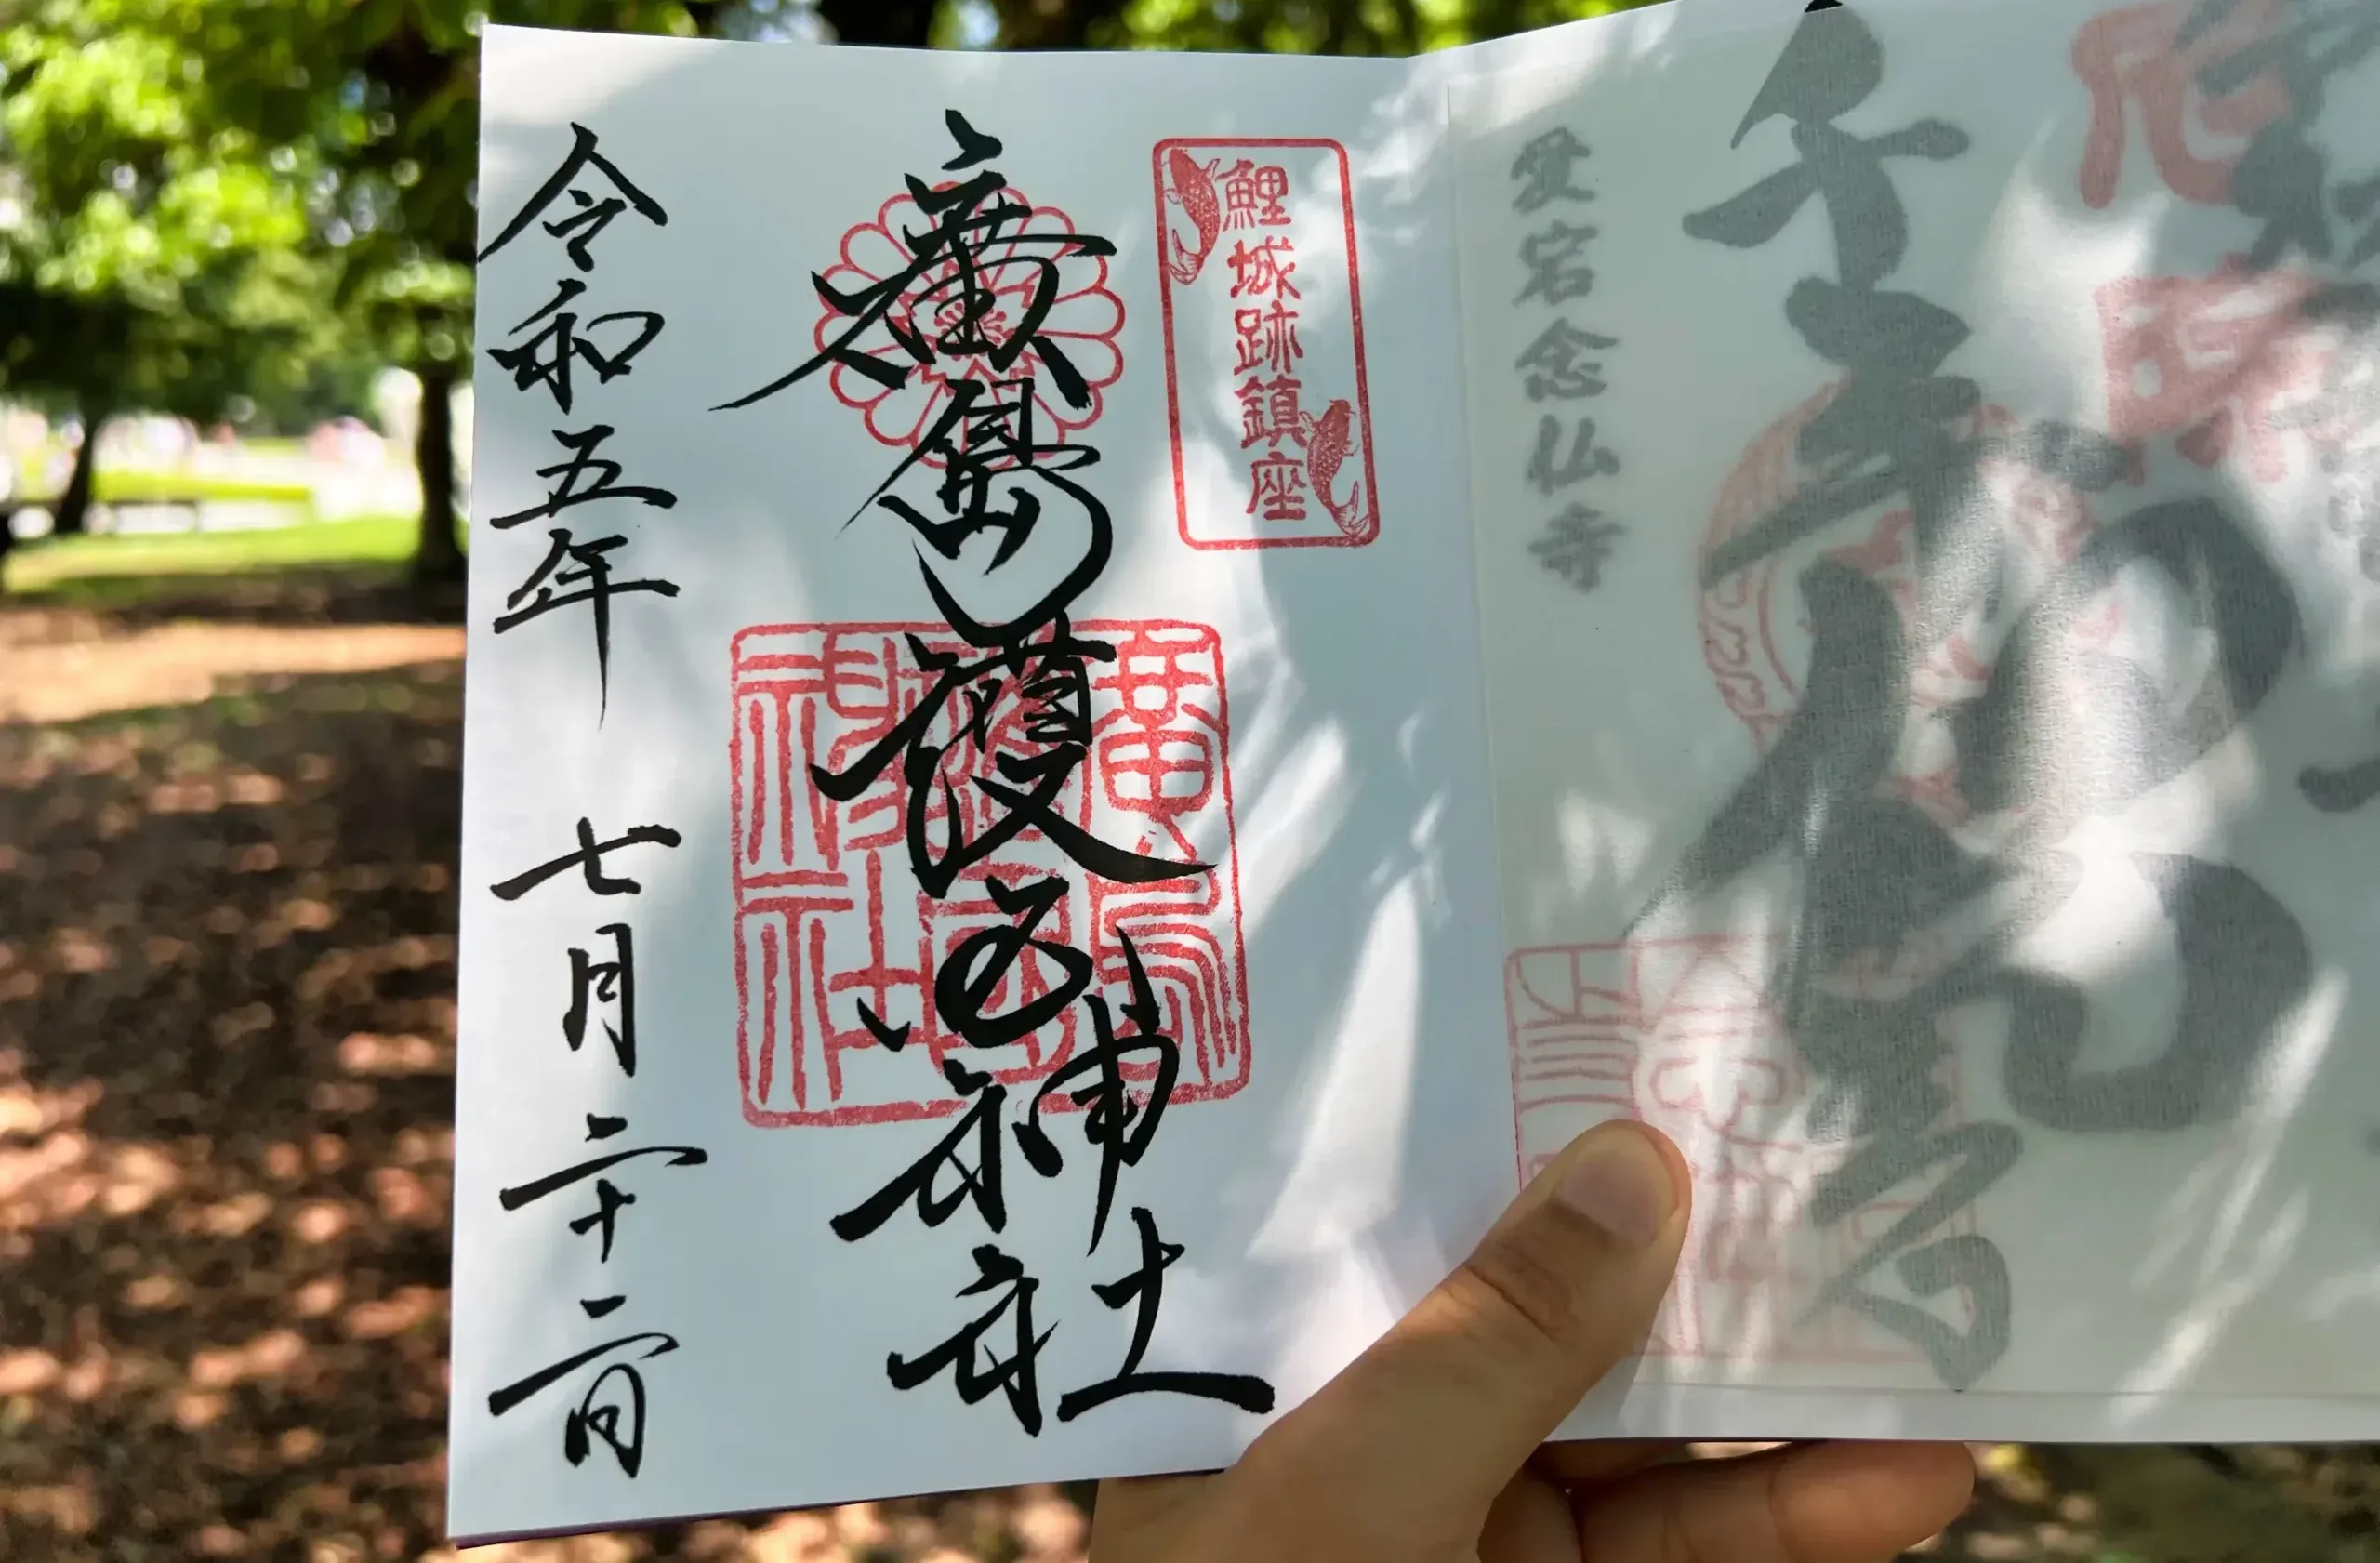 厄除
愛宕念仏寺
鯉城跡鎮座
廣島護國神社
廣島護國神社
令和五年 七月 二十二日